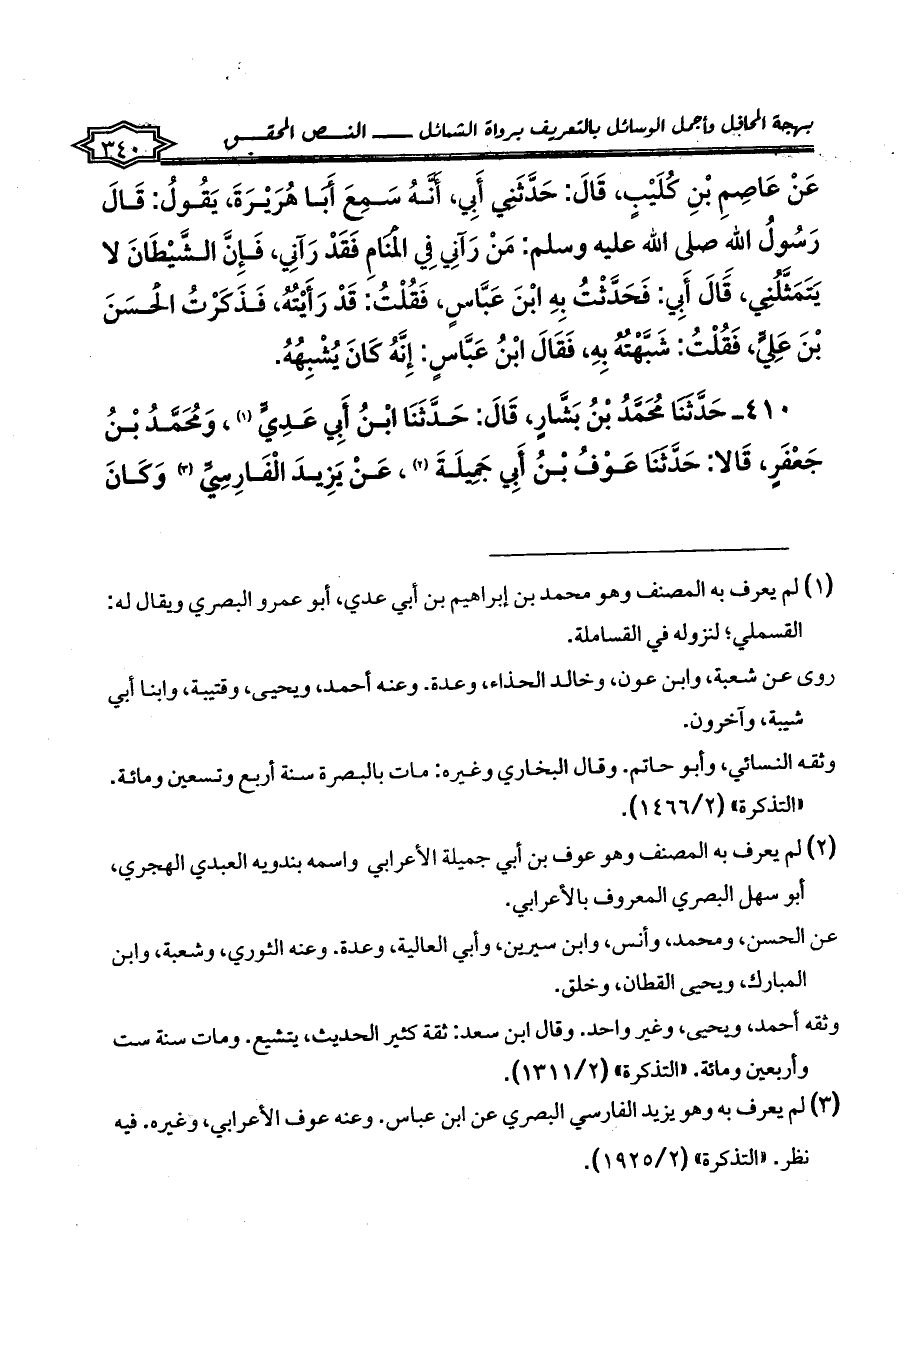 بهجة المحافل وأجمل الوسائل بالتعريف برواة الشمائل ـــ النص المحقق
٣٤٠
عَنْ عَاصِمِ بْنِ كُلَيْبٍ، قَالَ: حَدَّثَنِي أَبِي، أَنَّهُ سَمِعَ أَبَا هُرَيْرَةَ، يَقُولُ: قَالَ
رَسُولُ الله صلى الله عليه وسلم: مَنْ رَآنِي فِي الْمَنَامِ فَقَدْ رَآنِي، فَإِنَّ الشَّيْطَانَ لا
يَتَمَثَّلُنِي، قَالَ أَبِي: فَحَدَّثْتُ بِهِ ابْنَ عَبَّاسٍ، فَقُلْتُ: قَدْ رَأَيْتُهُ، فَذَكَرْتُ الْحَسَنَ
بْنَ عَلِيٍّ، فَقُلْتُ: شَبَّهْتُهُ بِهِ، فَقَالَ ابْنُ عَبَّاسٍ: إِنَّهُ كَانَ يُشْبِهُهُ.
٤١٠ـ حَدَّثَنَا مُحَمَّدُ بْنُ بَشَّارٍ، قَالَ: حَدَّثَنَا ابْنُ أَبِي عَدِيٍّ (١)، وَمُحَمَّدُ بْنُ
جَعْفَرٍ، قَالا: حَدَّثَنَا عَوْفُ بْنُ أَبِي جَمِيلَةَ (٢)، عَنْ يَزِيدَ الْفَارِسِيِّ (٣) وَكَانَ
(١) لم يعرف به المصنف وهو محمد بن إبراهيم بن أبي عدي، أبو عمرو البصري ويقال له:
القسملي؛ لنزوله في القساملة.
روى عن شعبة، وابن عون، وخالد الحذاء، وعدة. وعنه أحمد، ويحيى، وقتيبة، وابنا أبي
شيبة، وآخرون.
وثقه النسائي، وأبو حاتم. وقال البخاري وغيره: مات بالبصرة سنة أربع وتسعين ومائة.
«التذكرة» (١٤٦٦/٢).
(٢) لم يعرف به المصنف وهو عوف بن أبي جميلة الأعرابي واسمه بندويه العبدي الهجري،
أبو سهل البصري المعروف بالأعرابي.
عن الحسن، ومحمد، وأنس، وابن سيرين، وأبي العالية، وعدة. وعنه الثوري، وشعبة، وابن
المبارك، ويحيى القطان، وخلق.
وثقه أحمد، ويحيى، وغير واحد. وقال ابن سعد: ثقة كثير الحديث، يتشيع. ومات سنة ست
وأربعين ومائة. «التذكرة» (١٣١١/٢).
(٣) لم يعرف به وهو يزيد الفارسي البصري عن ابن عباس. وعنه عوف الأعرابي، وغيره. فيه
نظر. «التذكرة» (١٩٢٥/٢).